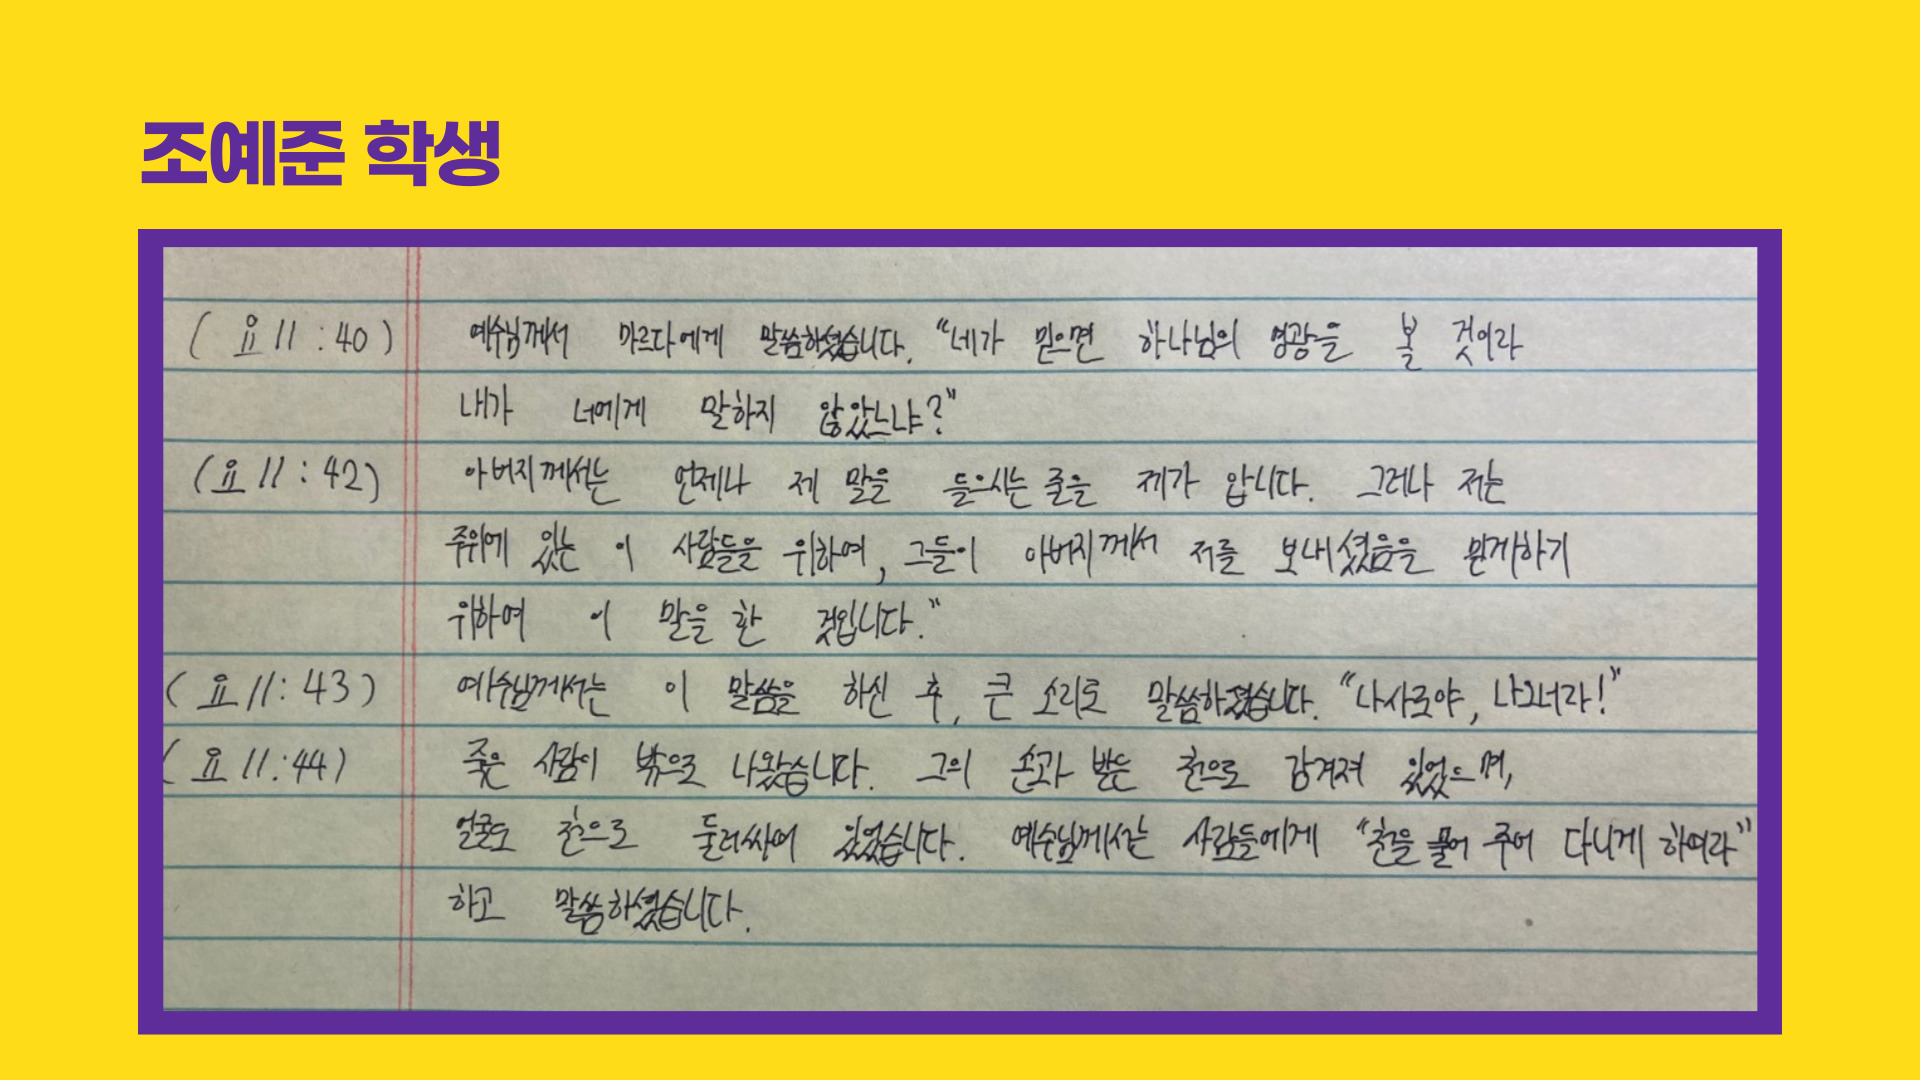 조예준 학생
(요 11:40) 예수님께서 마르다에게 말씀하셨습니다. "네가 믿으면 하나님의 영광을 볼 것이라
내가 너에게 말하지 않았느냐?"
(요 11:42) 아버지께서는 언제나 제 말을 들으시는 줄을 제가 압니다. 그러나 저는
주위에 있는 이 사람들을 위하여, 그들이 아버지께서 저를 보내셨음을 믿게하기
위하여 이 말을 한 것입니다."
(요 11:43) 예수님께서는 이 말씀을 하신 후, 큰 소리로 말씀하셨습니다. "나사로야, 나오너라!"
(요 11:44) 죽은 사람이 밖으로 나왔습니다. 그의 손과 발은 천으로 감겨져 있었으며,
얼굴도 천으로 둘러싸여 있었습니다. 예수님께서는 사람들에게 "천을 풀어 주어 다니게 하여라"
하고 말씀하셨습니다.